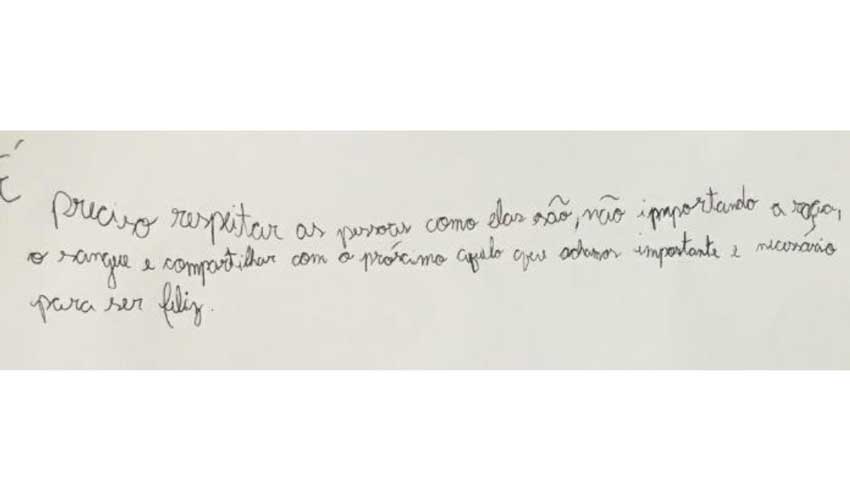 É preciso respeitar as pessoas como elas são, não importando a raça,
o sangue e compartilhar com o próximo aquilo que achamos importante e necessário
para ser feliz.